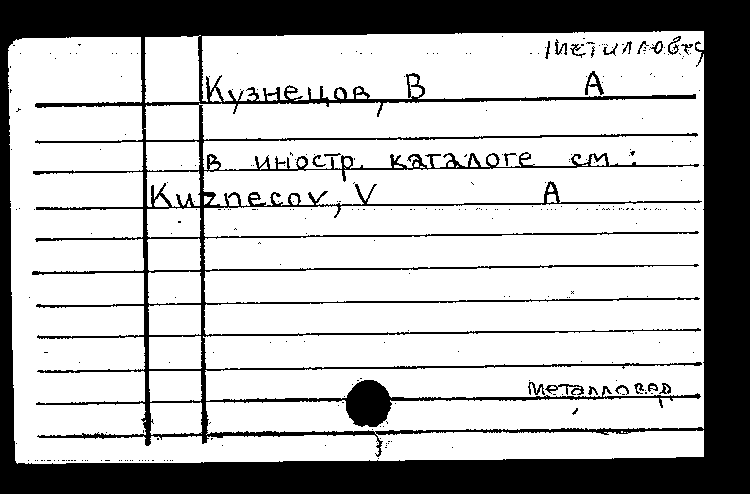 Кузнецов, В А
в иностр. каталоге см.:
Kuznecov, V A
металловед